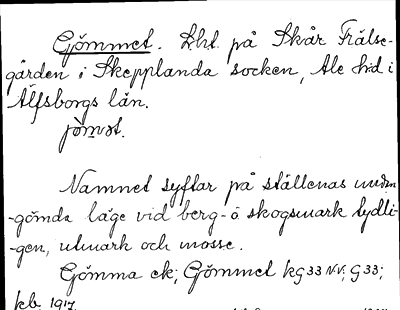 Gömmet. Lht. på Skår Frälse-
gården i Skepplanda socken, Ale hd i
Älfsborgs län.
Namnet syftar på ställenas undan
-gömda läge vid berg- o skogsmark tydli-
-gen, utmark och mosse.
Gömma ek; Gömmet kG33 NV; G33;
kb. 1917.